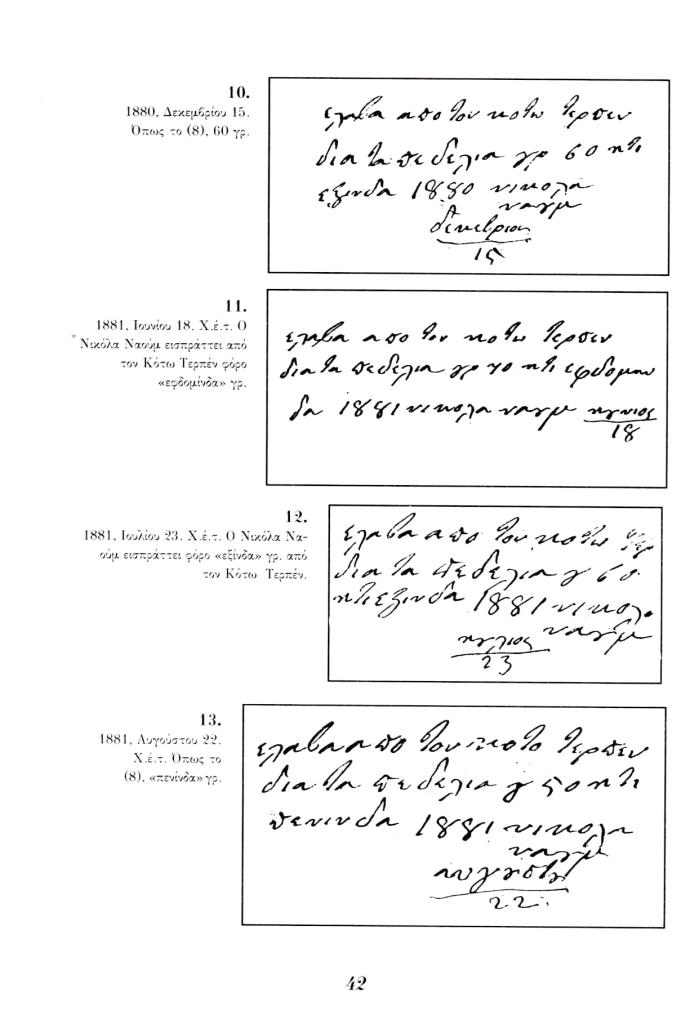 10.
1880, Δεκεμβρίου 15.
Όπως το (8), 60 γρ.
ελαβα απο τον κοτω τερπεν
δια τα πεδελια γρ 60 ητι
εξινδα 1880 νικολα
ναȣμ
δεκεβριος
15
11.
1881, Ιουνίου 18. Χ.έ.τ. Ο
Νικόλα Ναούμ εισπράττει από
τον Κότω Τερπέν φόρο
«εφδομίνδα» γρ.
ελαβα απο τον κοτω τερπεν
δια τα πεδελια γρ 70 ητι εφδομην
δα 1881 νικολα ναȣμ ηȣνιος
18
12.
1881, Ιουλίου 23. Χ.έ.τ. Ο Νικόλα Να-
ούμ εισπράττει φόρο «εξίνδα» γρ. από
τον Κότω Τερπέν.
ελαβα απο τον κοτω τερ
δια τα πεδελια γ 60
ητι εξινδα 1881 νικολα
ηȣλιος ναȣμ
23
13.
1881, Αυγούστου 22.
Χ.έ.τ. Όπως το
(8), «πενίνδα» γρ.
ελαβα απο τον κοτο τερπεν
δια τα πεδελια γ 50 ητι
πενινδα 1881 νικολα
ναȣμ
αυγȣστȣ
22
42